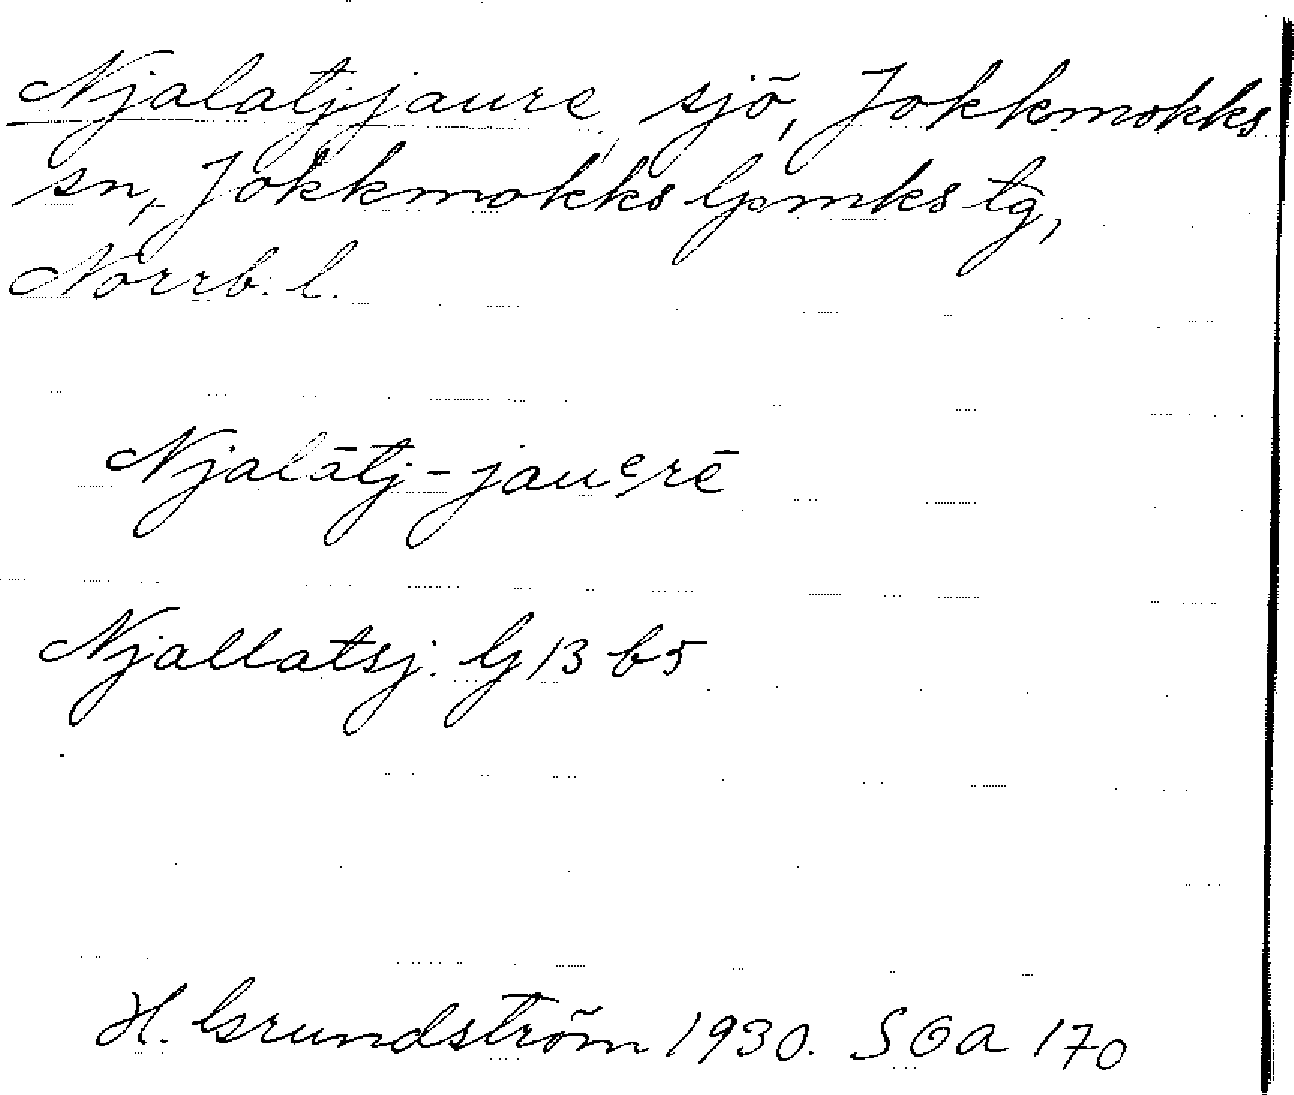 Njalatjjaure, sjö, Jokkmokks
sn, Jokkmokks lpmks tg,
Norrb. l.
Njalātj-jauᵉrē
Njallatsj. G 13 b5
H. Grundström 1930. SOA 170